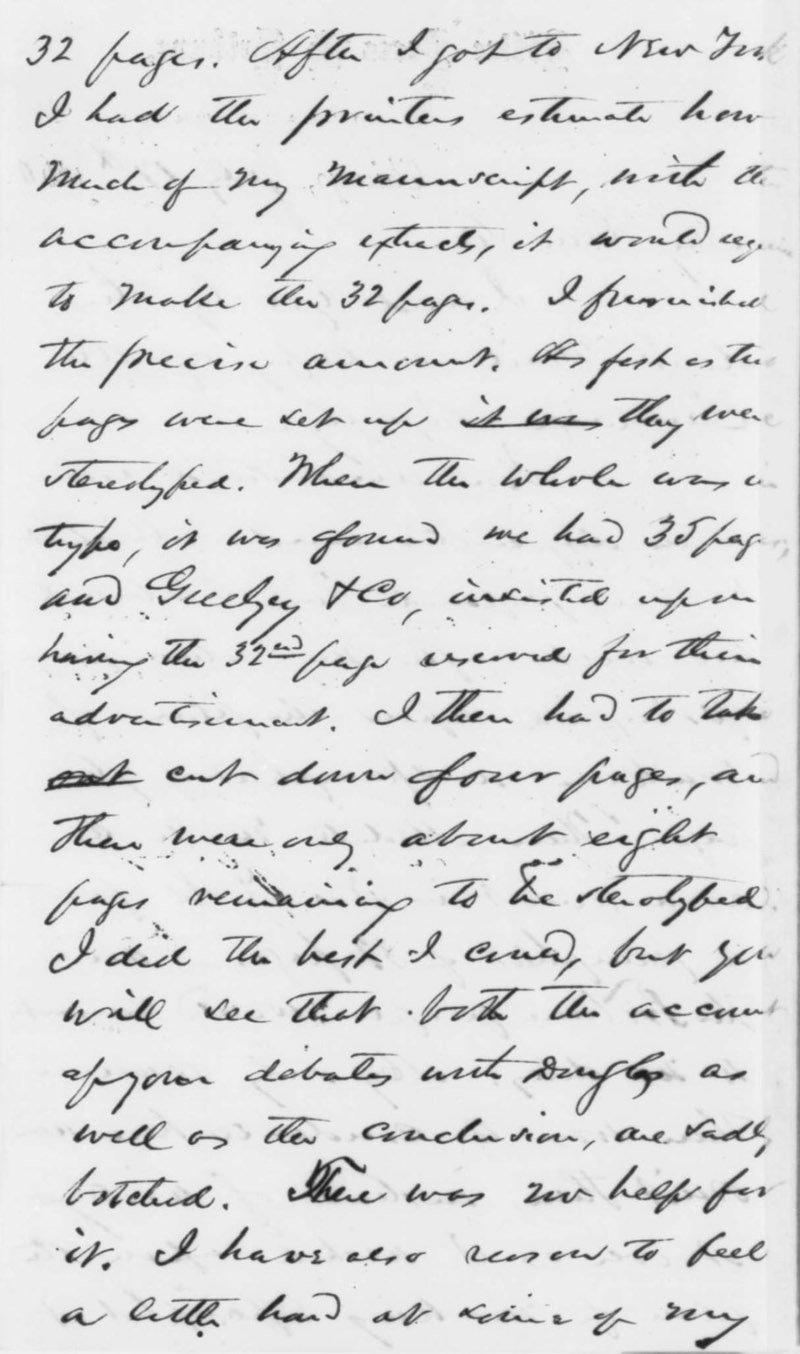 32 pages. After I got to New York
I had the printers estimate how
much of my manuscript, with the
accompanying extracts, it would
to make the 32 pages. I furnished
the precise amount. As fast as the
pages were set up it was they were
stereotyped. When the whole was in
type, it was found we had 35 pages,
and Greeley & Co, insisted upon
having the 32nd page reserved for their
advertisement. I then had to take
out cut down four pages, and
there were only about eight
pages remaining to be sterotyped.
I did the best I could, but you
will see that both the account
of your debates with Douglas as
well as the conclusion, are sadly
botched. There was no help for
it. I have also reason to feel
a little hard at some of my